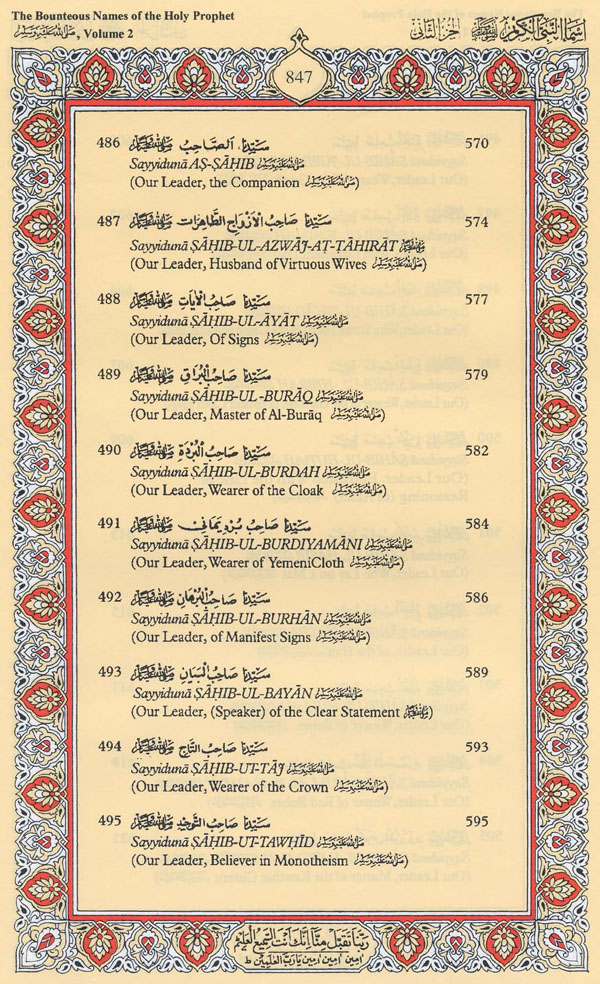 The Bounteous Names of the Holy Prophet
ﷺ, Volume 2
اسماء النبي الكريم ﷺ الجزء الثاني
847
486 سيدنا الصاحب ﷺ 570
Sayyidunā AṢ-ṢĀḤIB ﷺ
(Our Leader, the Companion ﷺ)
487 سيدنا صاحب الأزواج الطاهرات ﷺ 574
Sayyidunā ṢĀḤIB-UL-AZWĀJ-AT-ṬĀHIRĀT ﷺ
(Our Leader, Husband of Virtuous Wives ﷺ)
488 سيدنا صاحب الآيات ﷺ 577
Sayyidunā ṢĀḤIB-UL-ĀYĀT ﷺ
(Our Leader, Of Signs ﷺ)
489 سيدنا صاحب البراق ﷺ 579
Sayyidunā ṢĀḤIB-UL-BURĀQ ﷺ
(Our Leader, Master of Al-Burāq ﷺ)
490 سيدنا صاحب البردة ﷺ 582
Sayyidunā ṢĀḤIB-UL-BURDAH ﷺ
(Our Leader, Wearer of the Cloak ﷺ)
491 سيدنا صاحب برد يماني ﷺ 584
Sayyidunā ṢĀḤIB-UL-BURDIYAMĀNI ﷺ
(Our Leader, Wearer of YemeniCloth ﷺ)
492 سيدنا صاحب البرهان ﷺ 586
Sayyidunā ṢĀḤIB-UL-BURHĀN ﷺ
(Our Leader, of Manifest Signs ﷺ)
493 سيدنا صاحب البيان ﷺ 589
Sayyidunā ṢĀḤIB-UL-BAYĀN ﷺ
(Our Leader, (Speaker) of the Clear Statement ﷺ)
494 سيدنا صاحب التاج ﷺ 593
Sayyidunā ṢĀḤIB-UT-TĀJ ﷺ
(Our Leader, Wearer of the Crown ﷺ)
495 سيدنا صاحب التوحيد ﷺ 595
Sayyidunā ṢĀḤIB-UT-TAWḤĪD ﷺ
(Our Leader, Believer in Monotheism ﷺ)
ربنا تقبل منا إنك أنت السميع العليم
امين امين امين يا رب العلمين ط